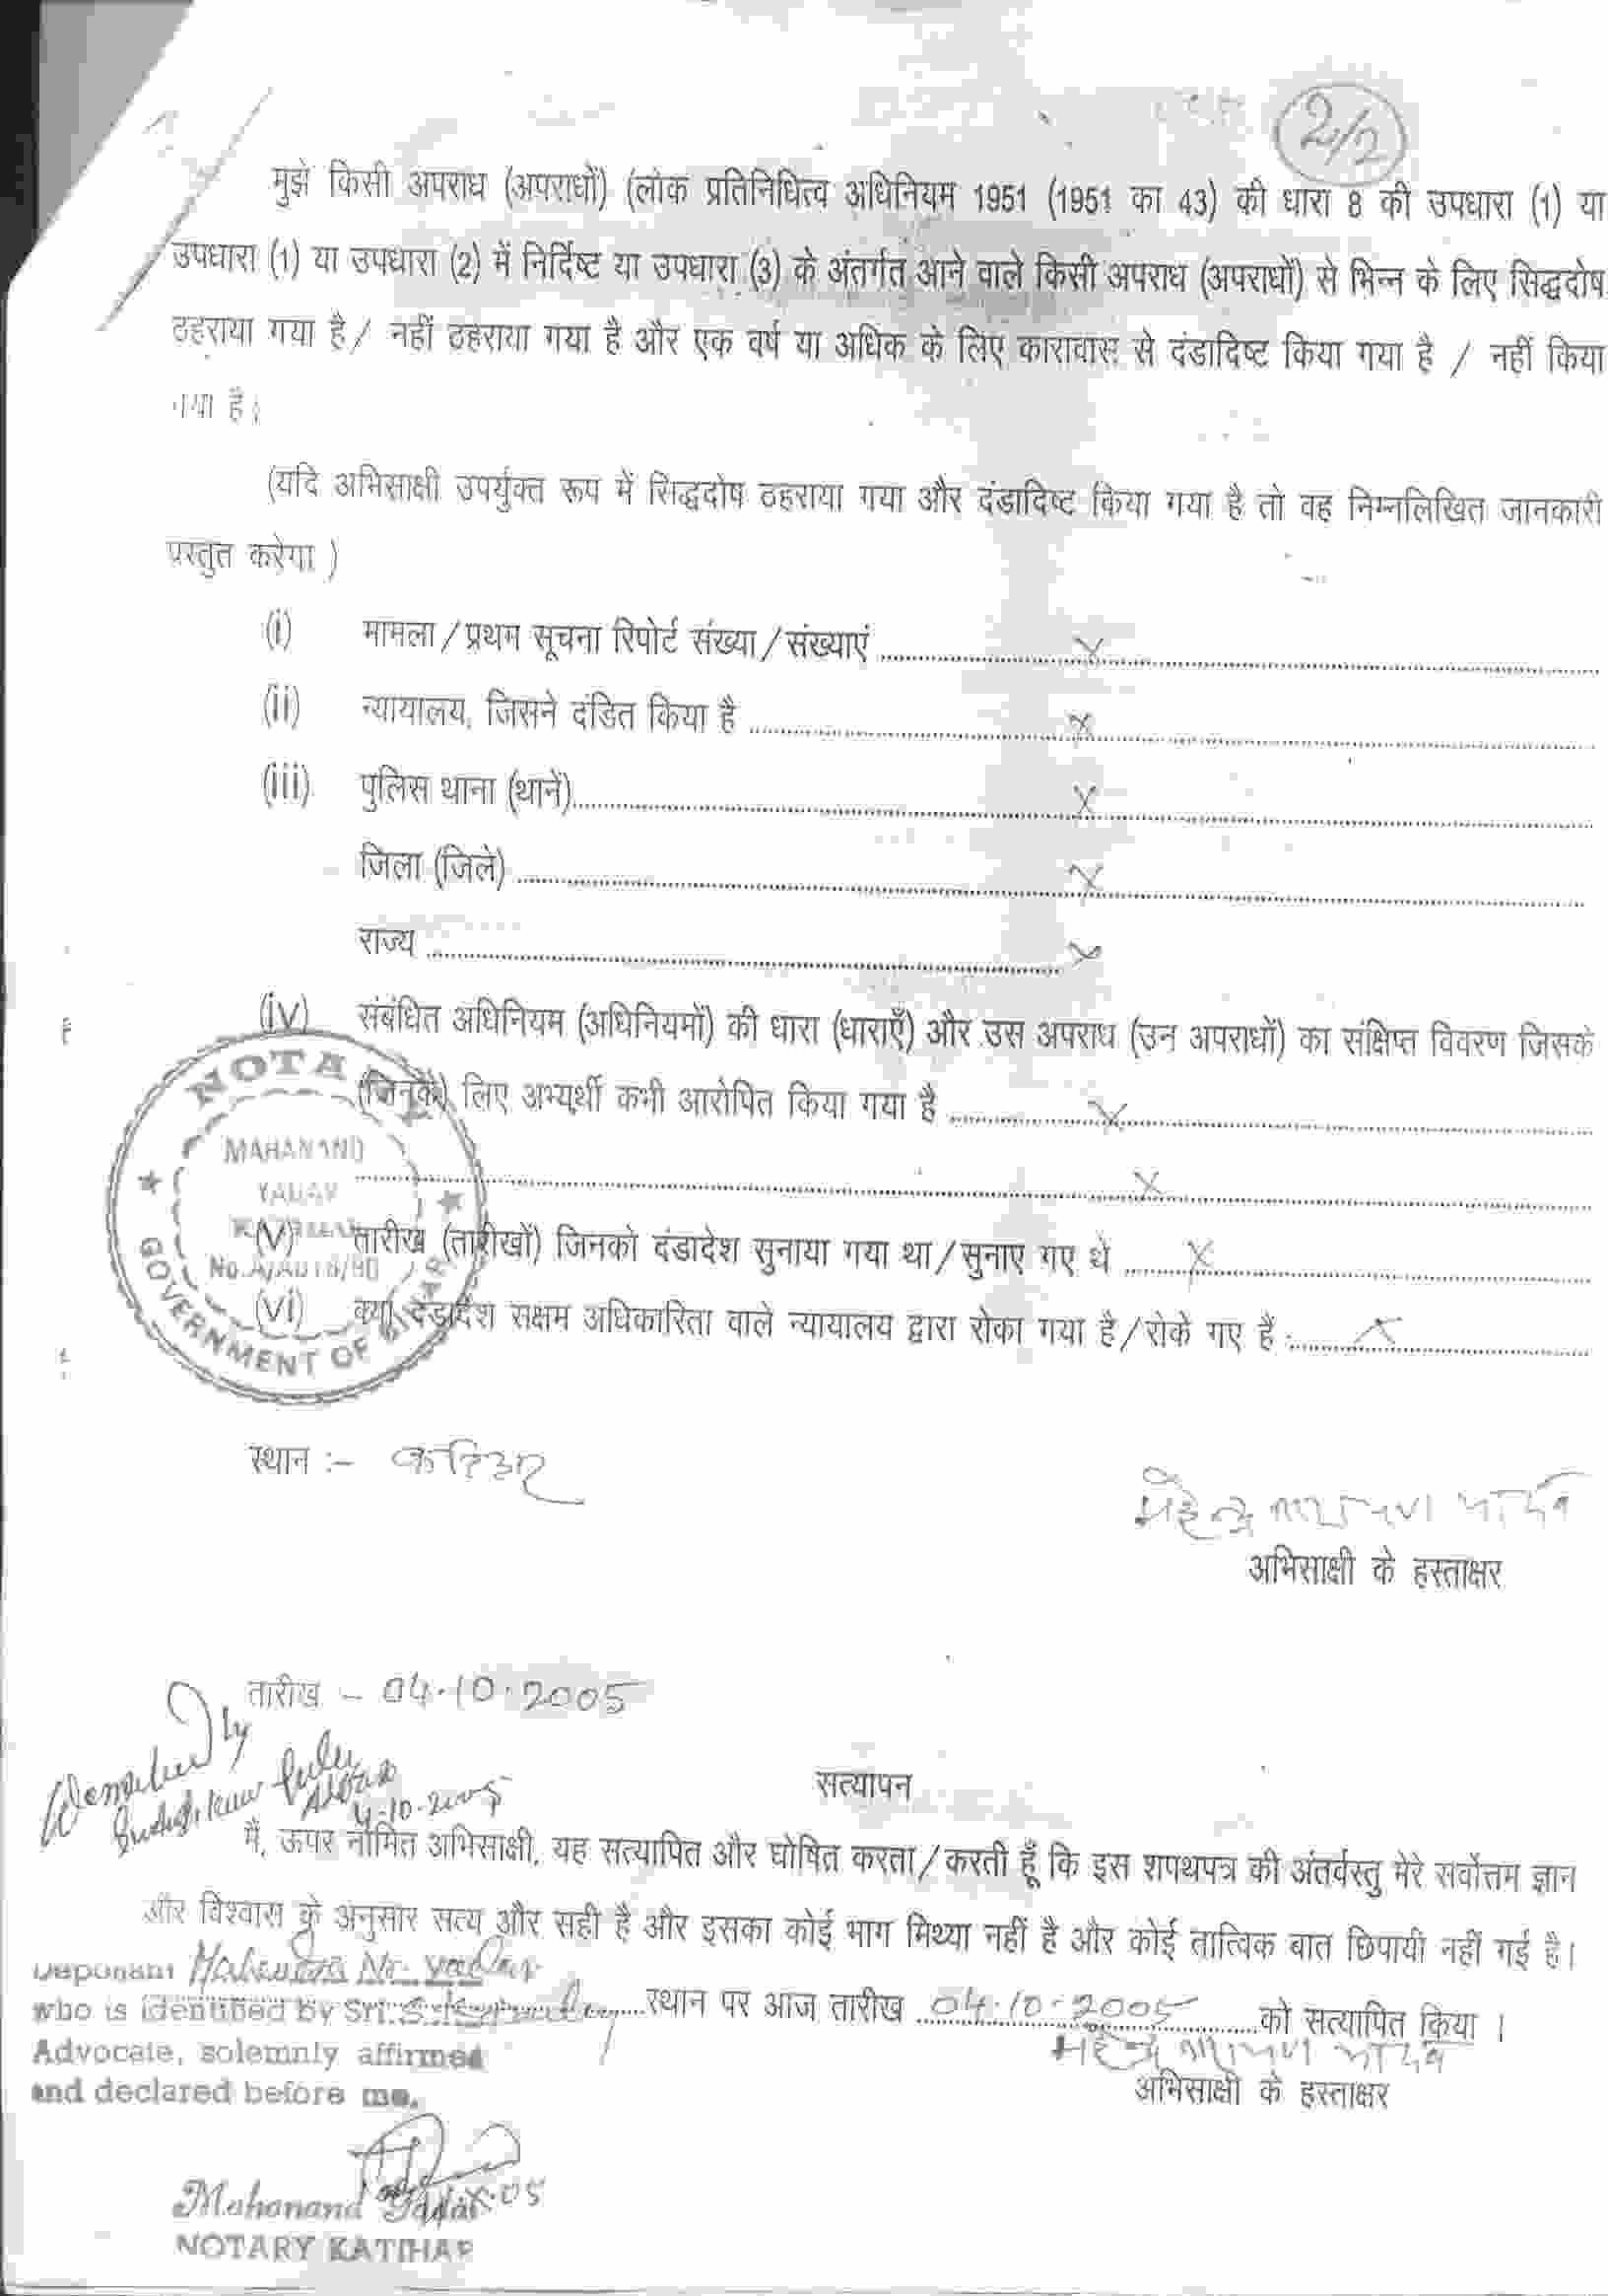 2/2
मुझे किसी अपराध (अपराधों) (लोक प्रतिनिधित्व अधिनियम 1951 (1951 का 43) की धारा 8 की उपधारा (1) या
उपधारा (1) या उपधारा (2) में निर्दिष्ट या उपधारा (3) के अंतर्गत आने वाले किसी अपराध (अपराधों) से भिन्न के लिए सिद्धदोष
ठहराया गया है / नहीं ठहराया गया है और एक वर्ष या अधिक के लिए कारावास से दंडादिष्ट किया गया है / नहीं किया
गया है।
(यदि अभिसाक्षी उपर्युक्त रूप में सिद्धदोष ठहराया गया और दंडादिष्ट किया गया है तो वह निम्नलिखित जानकारी
प्रस्तुत करेगा )
(i) मामला / प्रथम सूचना रिपोर्ट संख्या / संख्याएं .......... X
(ii) न्यायालय, जिसने दंडित किया है .......... X
(iii) पुलिस थाना (थानें) .......... X
जिला (जिले) .......... X
राज्य .......... X
(iv) संबंधित अधिनियम (अधिनियमों) की धारा (धाराएँ) और उस अपराध (उन अपराधों) का संक्षिप्त विवरण जिसके
(जिनके) लिए अभ्यर्थी कभी आरोपित किया गया है .......... X
.......... X
(v) तारीख (तारीखों) जिनको दंडादेश सुनाया गया था / सुनाए गए थे .......... X
(vi) क्या दंडादेश सक्षम अधिकारिता वाले न्यायालय द्वारा रोका गया है / रोके गए हैं :.......... X
MAHANAND
YADAV
GOVERNMENT OF BIHAR
स्थान :- कटिहार
महेन्द्र नारायण यादव
अभिसाक्षी के हस्ताक्षर
तारीख - 04.10.2005
4-10-2005
सत्यापन
मैं, ऊपर नामित अभिसाक्षी, यह सत्यापित और घोषित करता / करती हूँ कि इस शपथपत्र की अंतर्वस्तु मेरे सर्वोत्तम ज्ञान
और विश्वास के अनुसार सत्य और सही है और इसका कोई भाग मिथ्या नहीं है और कोई तात्विक बात छिपायी नहीं गई है।
Deponant Mahendra Nr. Yadav
who is identified by Sri. .......... स्थान पर आज तारीख 04.10.2005 को सत्यापित किया ।
महेन्द्र नारायण यादव
Advocate, solemnly affirmed
अभिसाक्षी के हस्ताक्षर
and declared before me.
Mahanand Yadav
NOTARY KATIHAR